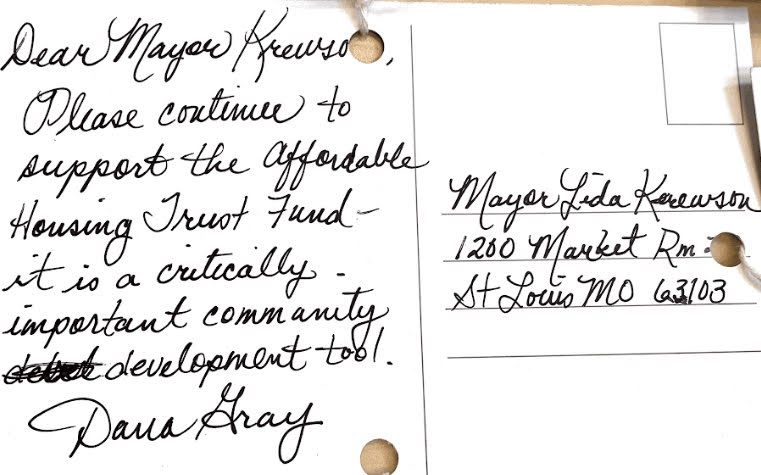 Dear Mayor Krewson,
Please continue to
support the Affordable
Housing Trust Fund -
it is a critically -
important community
development tool.
Dana Gray
Mayor Lida Krewson
1200 Market Rm
St Louis MO 63103